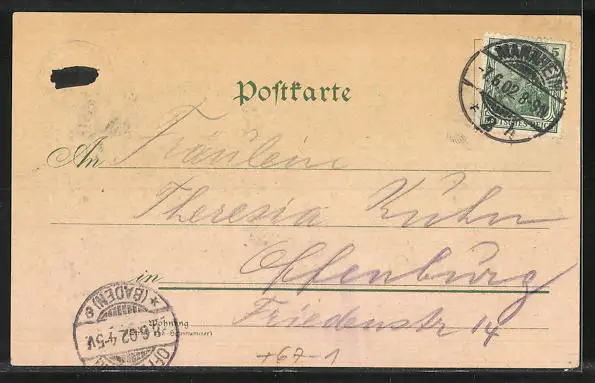 Postkarte
5
MANNHEIM
7.6.02.8-9N
An Fräulein
Theresia Kuhn
in Offenburg
Friedenstr 14
Wohnung
(BADEN)
8.6.02.4-5V.
+67-1